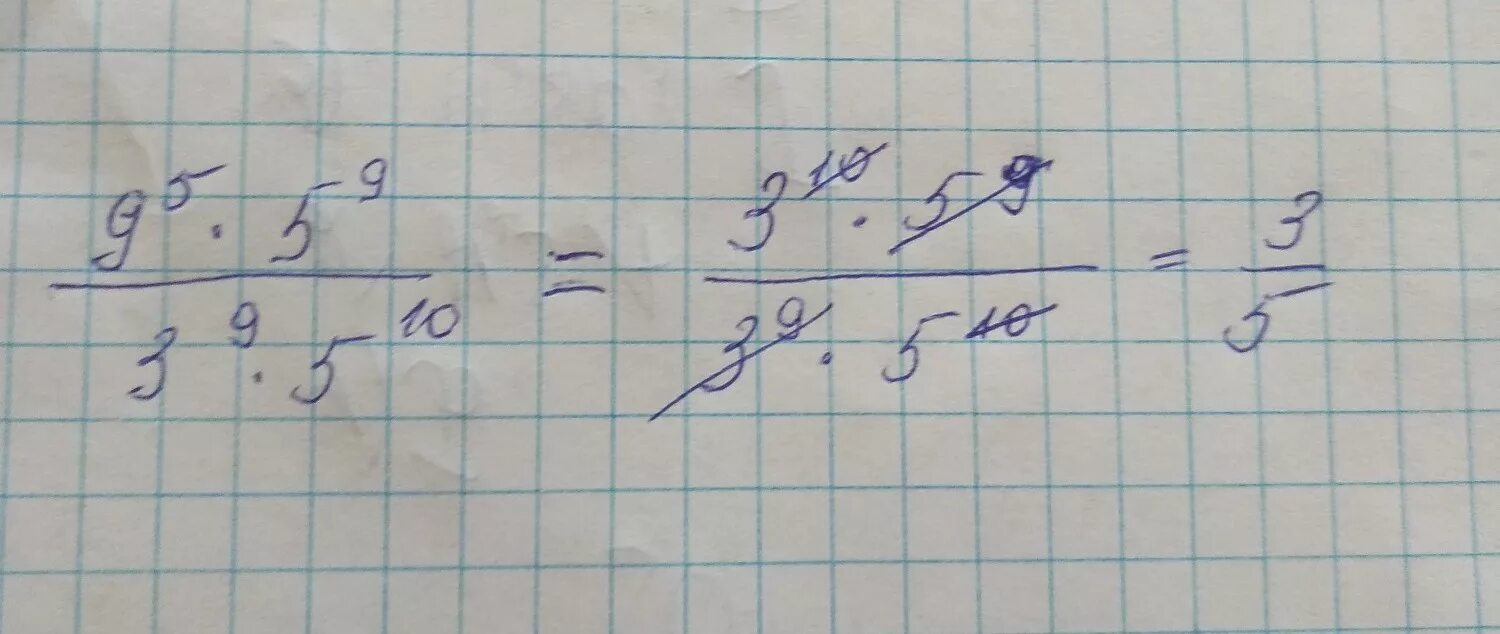 9⁵ · 5⁹ / 3⁹ · 5¹⁰ = 3¹⁰ · 5⁹ / 3⁹ · 5¹⁰ = 3 / 5